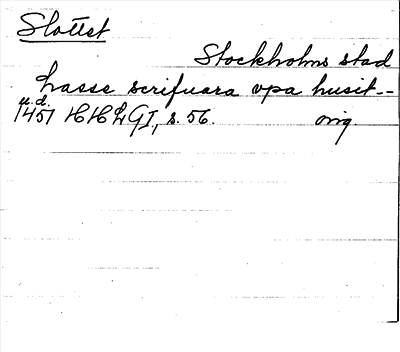 Slottet
Stockholms stad
hasse scrifuara vpa husit--
u.d.
1451 HH & GI, s. 56. orig.